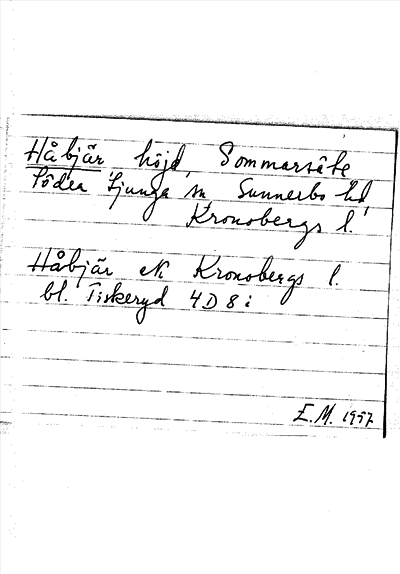 Håbjär höjd, Sommarsäte
Södra Ljunga sn Sunnerbo hd,
Kronobergs l.
Håbjär ek Kronobergs l.
bl. Tiskeryd 4D 8i
E.M. 1997